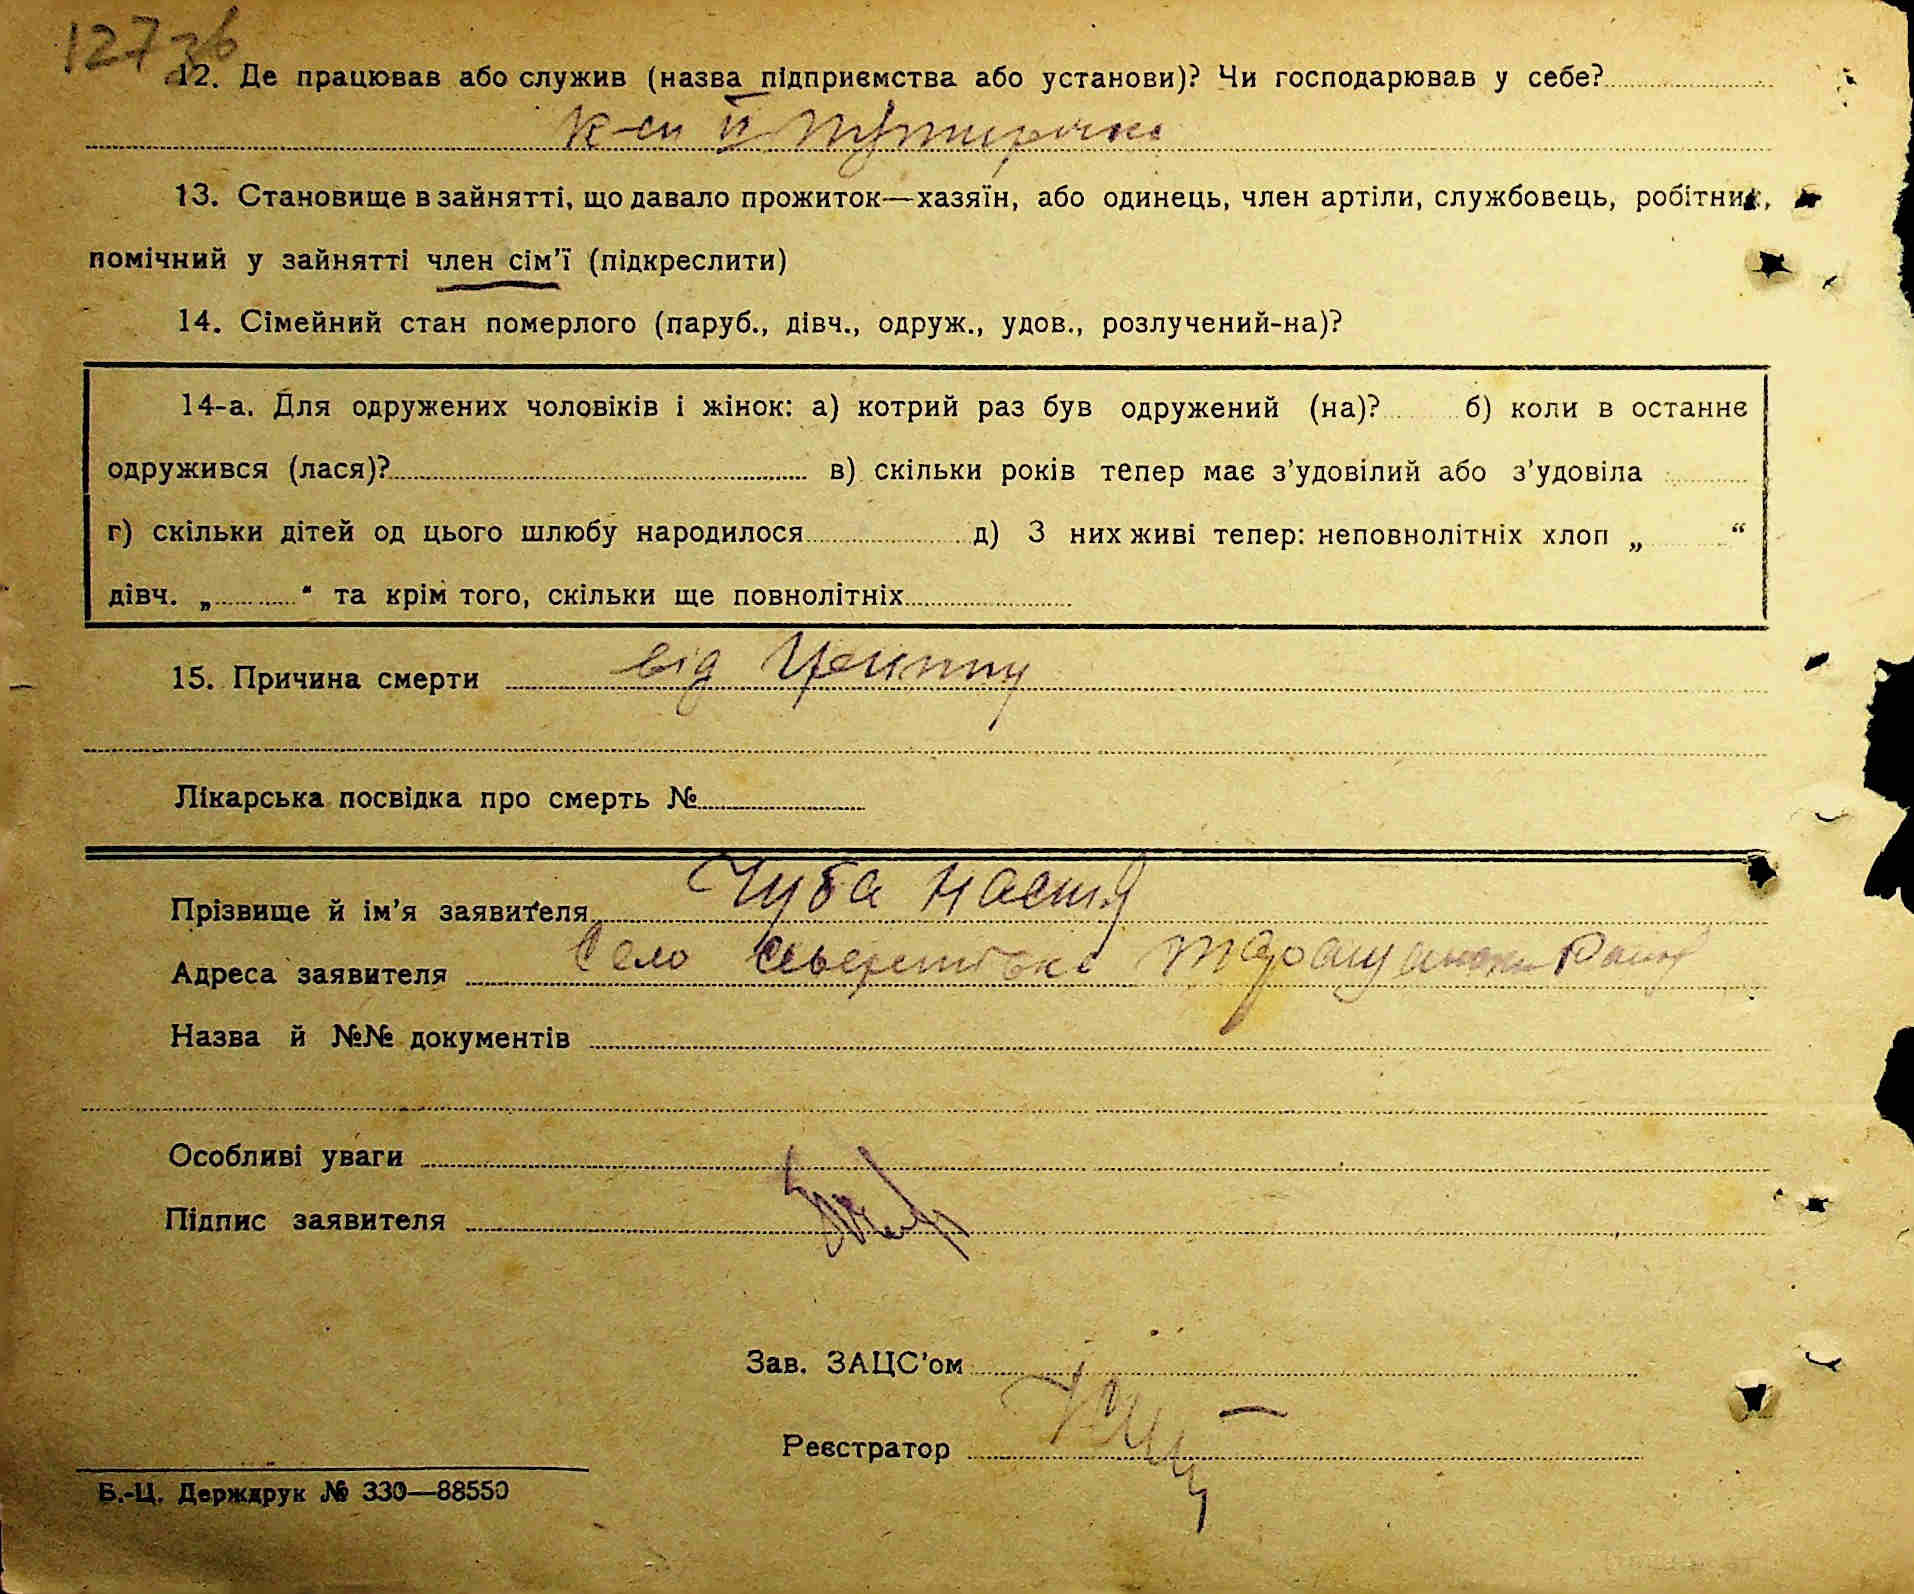 127зв
12. Де працював або служив (назва підприємства або установи)? Чи господарював у себе?
к-сп II
13. Становище в зайнятті, що давало прожиток—хазяїн, або одинець, член артіли, службовець, робітник,
помічний у зайнятті член сім'ї (підкреслити)
14. Сімейний стан померлого (паруб., дівч., одруж., удов., розлучений-на)?
14-а. Для одружених чоловіків і жінок: а) котрий раз був одружений (на)? б) коли в останнє
одружився (лася)? в) скільки років тепер має з'удовілий або з'удовіла
г) скільки дітей од цього шлюбу народилося д) З них живі тепер: неповнолітніх хлоп „ “
дівч. „ “ та крім того, скільки ще повнолітніх
15. Причина смерти від
Лікарська посвідка про смерть №
Прізвище й ім'я заявителя Чуба Настя
Адреса заявителя село
Назва й №№ документів
Особливі уваги
Підпис заявителя
Зав. ЗАЦС'ом
Реєстратор
Б.-Ц. Держдрук № 330—88550